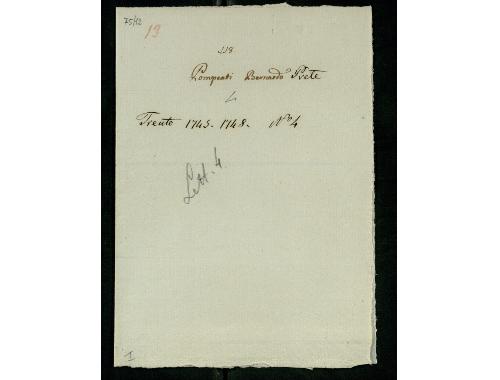 75/12
13
118.
Pompeati Bernardo Prete
4
Trento 1745-1748. No 4
Lett. 4
I